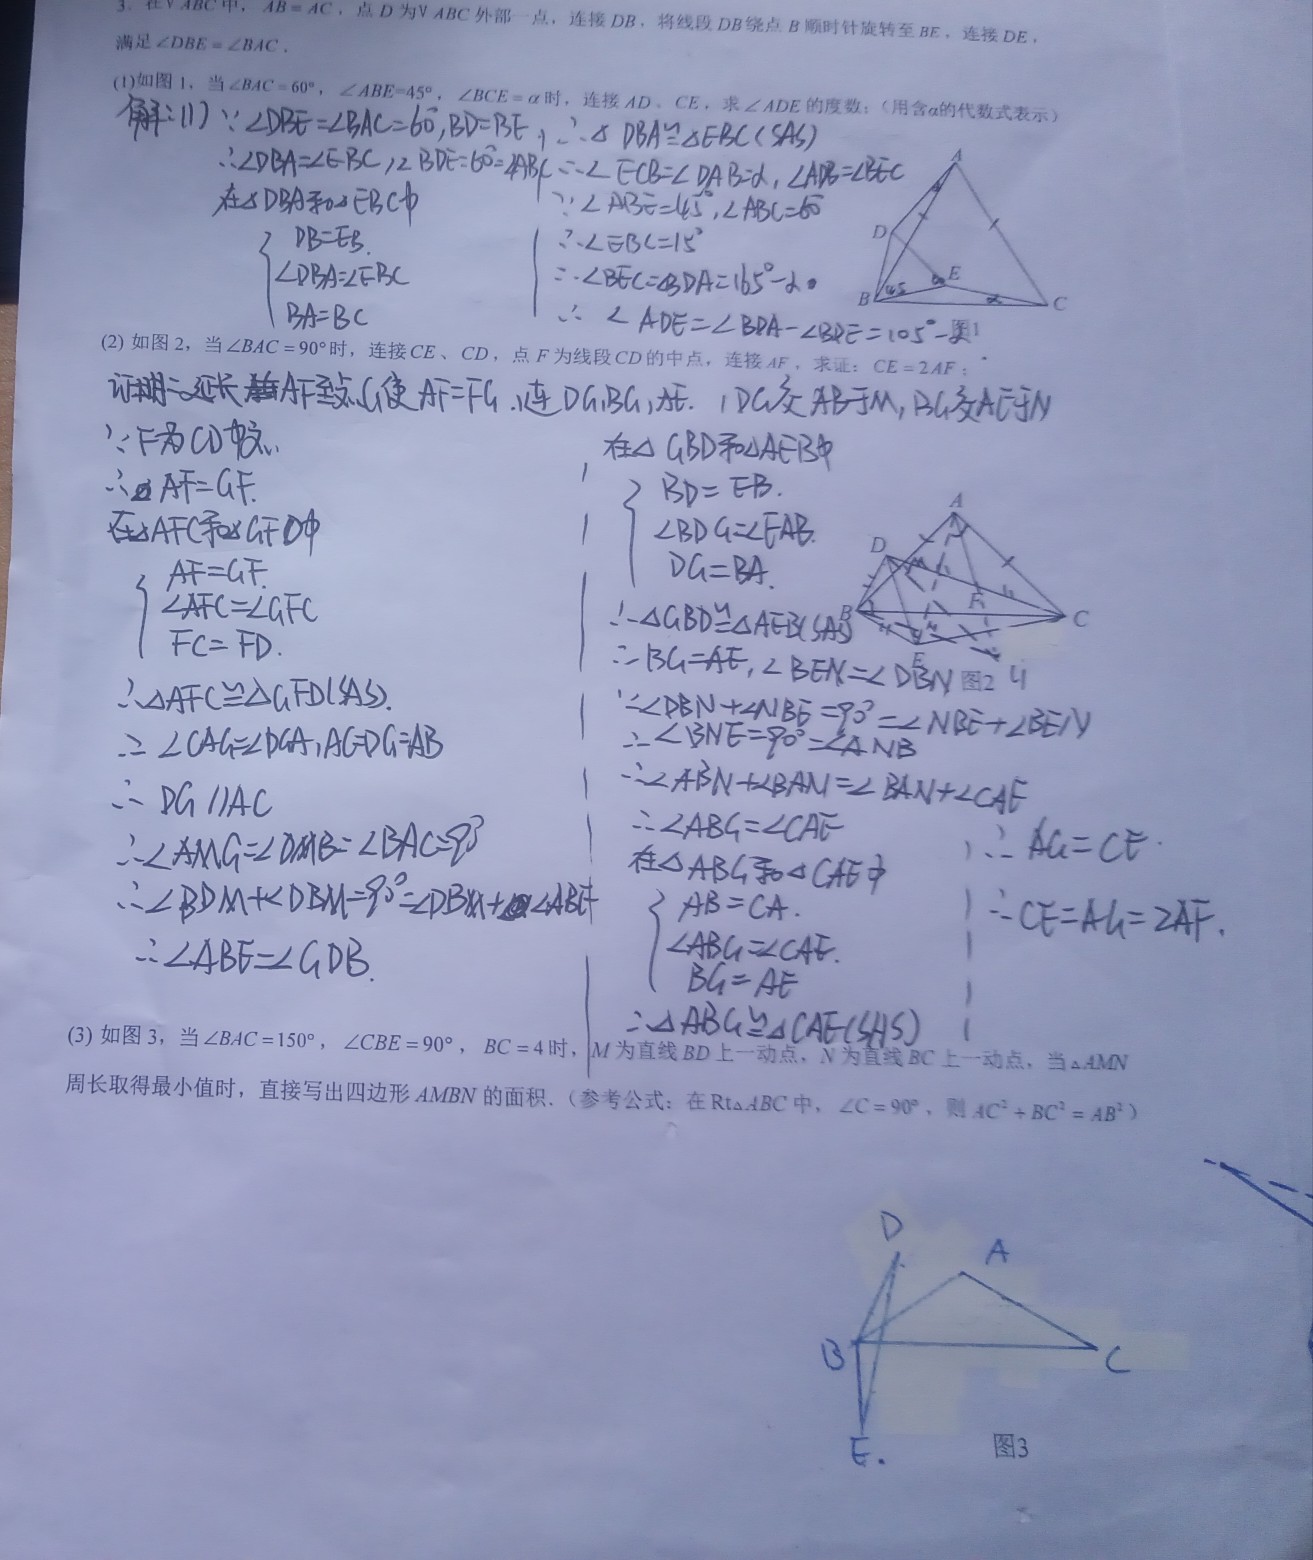 3. 在▽ABC中，AB=AC，点D为▽ABC外部一点，连接DB，将线段DB绕点B顺时针旋转至BE，连接DE，
满足∠DBE=∠BAC．
(1)如图1，当∠BAC=60°，∠ABE=45°，∠BCE=α时，连接AD、CE，求∠ADE的度数；（用含α的代数式表示）
解：(1) ∵∠DBE=∠BAC=60°,BD=BE,
∴∠DBA=∠EBC,∠BDE=60°=∠ABC
在△DBA和△EBC中
DB=EB.
∠DBA=∠EBC
BA=BC
∴△DBA≌△EBC(SAS)
∴∠ECB=∠DAB=α,∠ADB=∠BEC
∵∠ABE=45°,∠ABC=60°
∴∠EBC=15°
∴∠BEC=∠BDA=165°-α
∴∠ADE=∠BDA-∠BDE=105°-α
A
D
E
45
60
α
B
C
图1
(2) 如图2，当∠BAC=90°时，连接CE、CD，点F为线段CD的中点，连接AF，求证：CE=2AF；
证明：延长AF至点G使AF=FG.连DG,BG,AE.DG交AB于M,BG交AE于N
∵F为CD中点.
∴AF=GF.
在△AFC和△GFD中
AF=GF.
∠AFC=∠GFC
FC=FD.
∴△AFC≌△GFD(SAS).
∴∠CAG=∠DGA,AC=DG=AB
∴DG//AC
∴∠AMG=∠DMB=∠BAC=90°
∴∠BDM+∠DBM=90°=∠DBM+∠ABE
∴∠ABE=∠GDB.
在△GBD和△AEB中
BD=EB.
∠BDG=∠EAB.
DG=BA.
∴△GBD≌△AEB(SAS)
∴BG=AE,∠BEN=∠DBN
∵∠DBN+∠NBE=90°=∠NBE+∠BEN
∴∠BNE=90°=∠ANB
∴∠ABN+∠BAN=∠BAN+∠CAE
∴∠ABG=∠CAE
在△ABG和△CAE中
AB=CA.
∠ABG=∠CAE.
BG=AE
∴△ABG≌△CAE(SAS)
∴AG=CE.
∴CE=AG=2AF.
A
D
M
F
B
C
E
G
图2
(3) 如图3，当∠BAC=150°，∠CBE=90°，BC=4时，M为直线BD上一动点，N为直线BC上一动点，当△AMN
周长取得最小值时，直接写出四边形AMBN的面积．（参考公式：在Rt△ABC中，∠C=90°，则AC²+BC²=AB²）
D
A
B
C
E.
图3